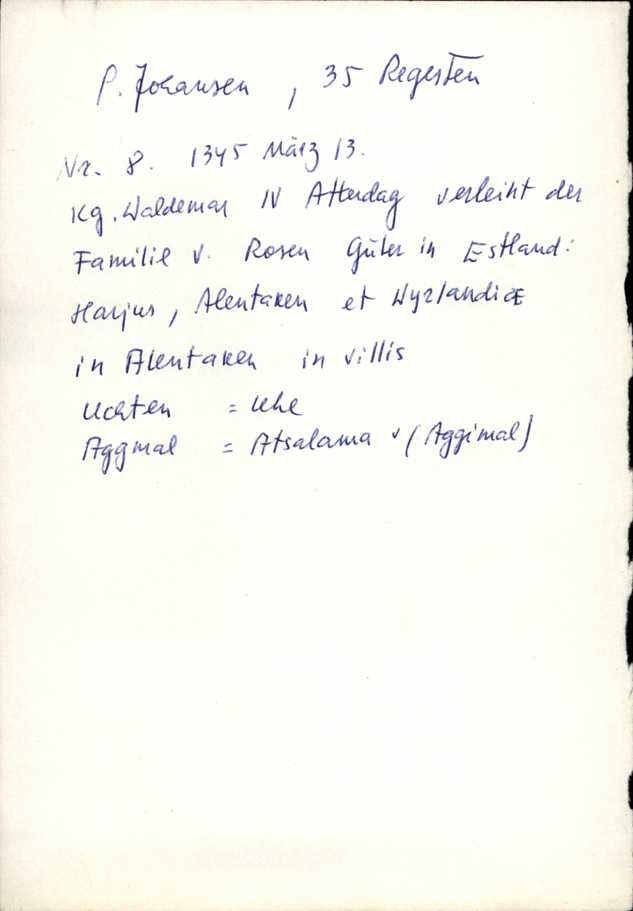 P. Johansen, 35 Regesten
Nr. 8. 1345 März 13.
Kg. Waldemar IV Atterdag verleiht der
Familie v. Rosen Güter in Estland:
Harjus, Alentaken et Wyrlandiæ
in Alentaken in villis
Uchten = Uhe
Aggmal = Atsalama v (Aggimal)